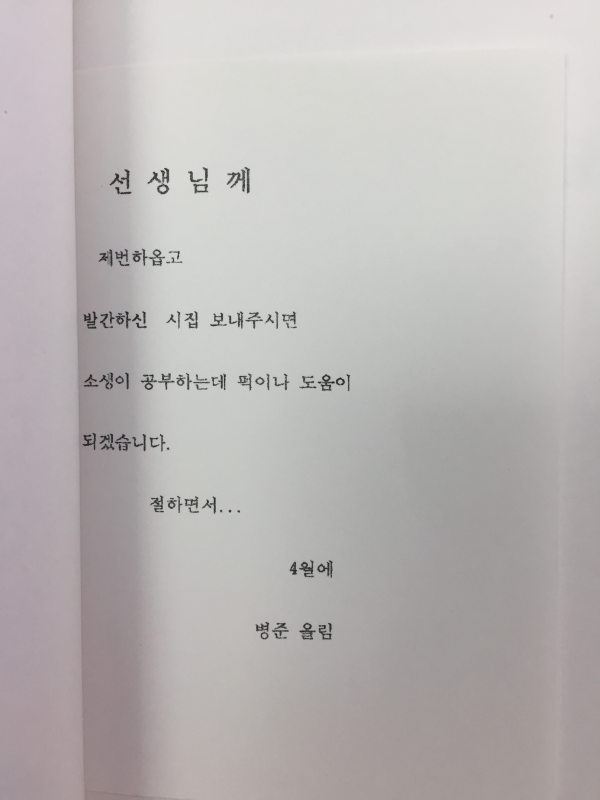 선생님께
제번하옵고
발간하신 시집 보내주시면
소생이 공부하는데 퍽이나 도움이
되겠습니다.
절하면서...
4월에
병준 올림